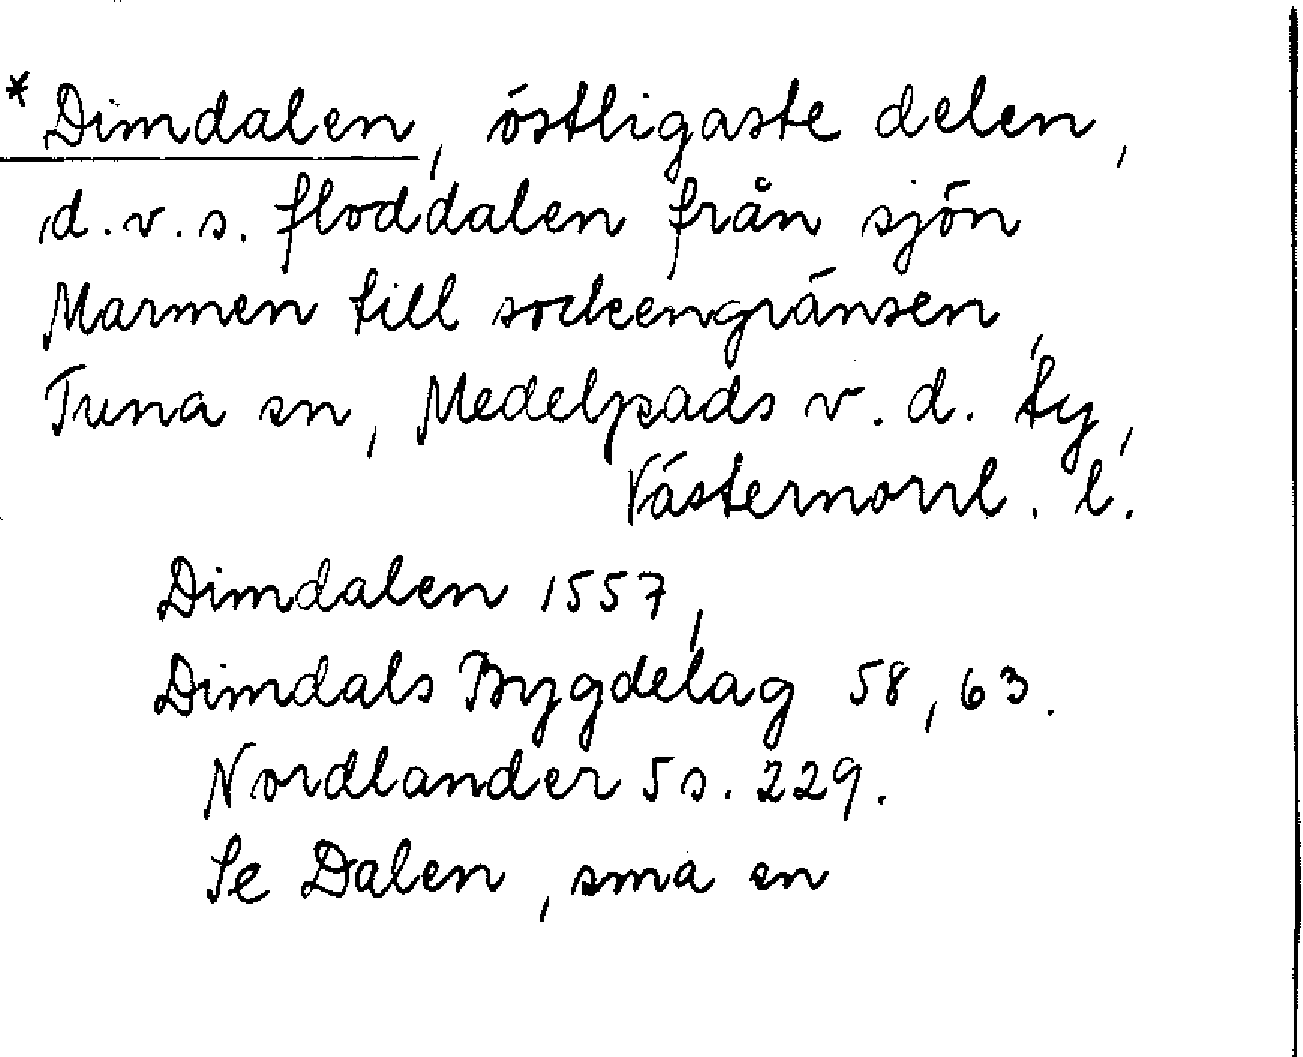 * Dimdalen, östligaste delen,
d.v.s. floddalen från sjön
Marmen till sockengränsen,
Tuna sn, Medelpads v. d. ty,
Västernorrl. l.
Dimdalen 1557,
Dimdals Bygdelag 58, 63.
Nordlander 5 s. 229.
Se Dalen, sma sn